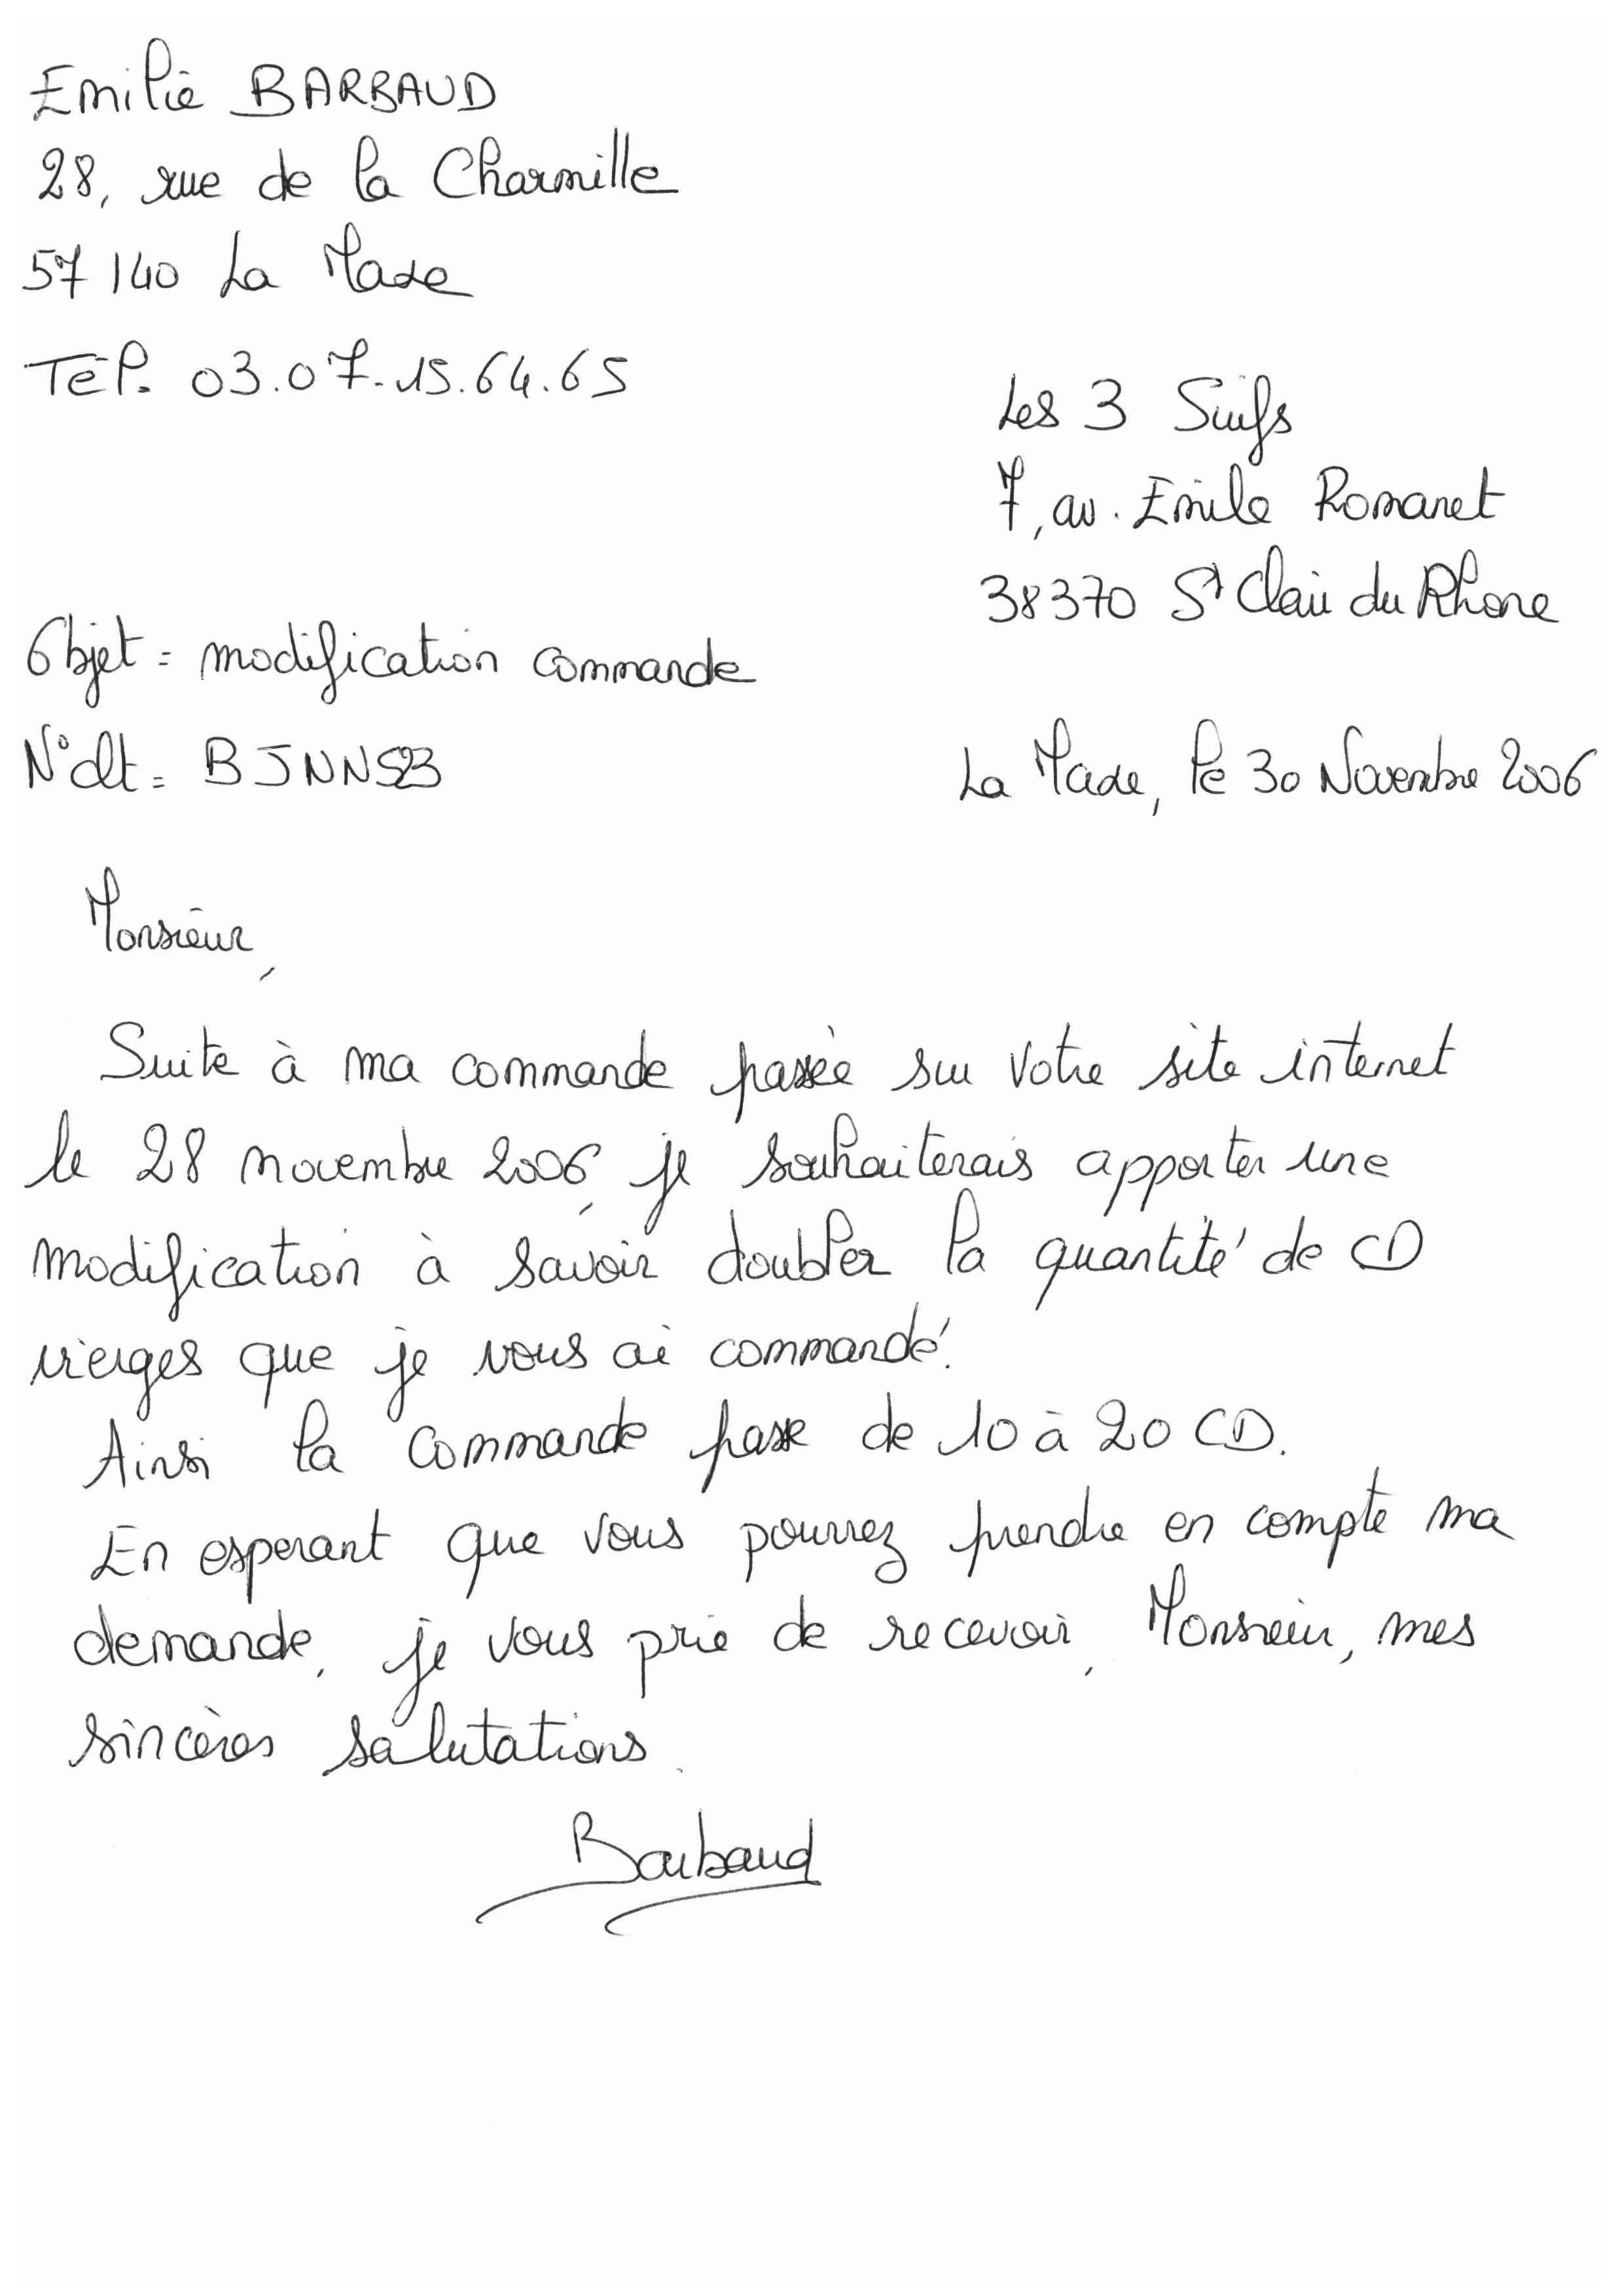 Emilie BARBAUD
28, rue de la Charmille
57 140 La Maxe
Tél. 03.07.15.64.65
Les 3 Suifs
7, av. Emile Romanet
38370 St Clair du Rhone
Objet = modification commande
N°clt = BJNNS23
La Maxe, le 30 Novembre 2006
Monsieur,
Suite à ma commande passée sur votre site internet
le 28 novembre 2006, je souhaiterais apporter une
modification à savoir doubler la quantité de CD
vierges que je vous ai commandé.
Ainsi la commande passe de 10 à 20 CD.
En esperant que vous pourrez prendre en compte ma
demande, je vous prie de recevoir, Monsieur, mes
sincères salutations.
Barbaud